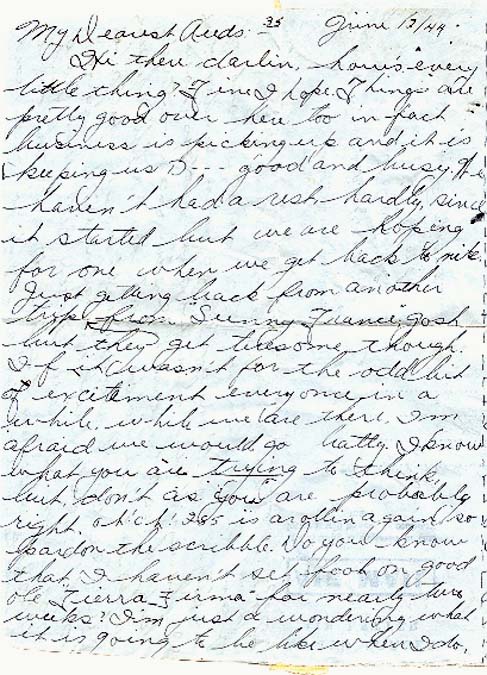 My Dearest Auds: 35 June 13/44.
Hi there darlin, how's every
little thing? Fine I hope. Things are
pretty good over here too in fact
business is picking up and it is
keeping us D--- good and busy. We
haven't had a rest hardly, since
it started but we are hoping
for one when we get back to nite.
Just getting back from another
trip from "Sunny France," gosh
but they get tiresome though.
If it wasn't for the odd bit
of excitement everyonce in a
while, while we are there. I'm
afraid we would go batty. I know
what you are trying to think
but don't as you are probably
right. oh'ch! 285 is arollin again so
pardon the scribble. Do you know
that I haven't set foot on good
ole Tierra Firma for nearly two
weeks? I'm just a wondering what
it is going to be like when I do,